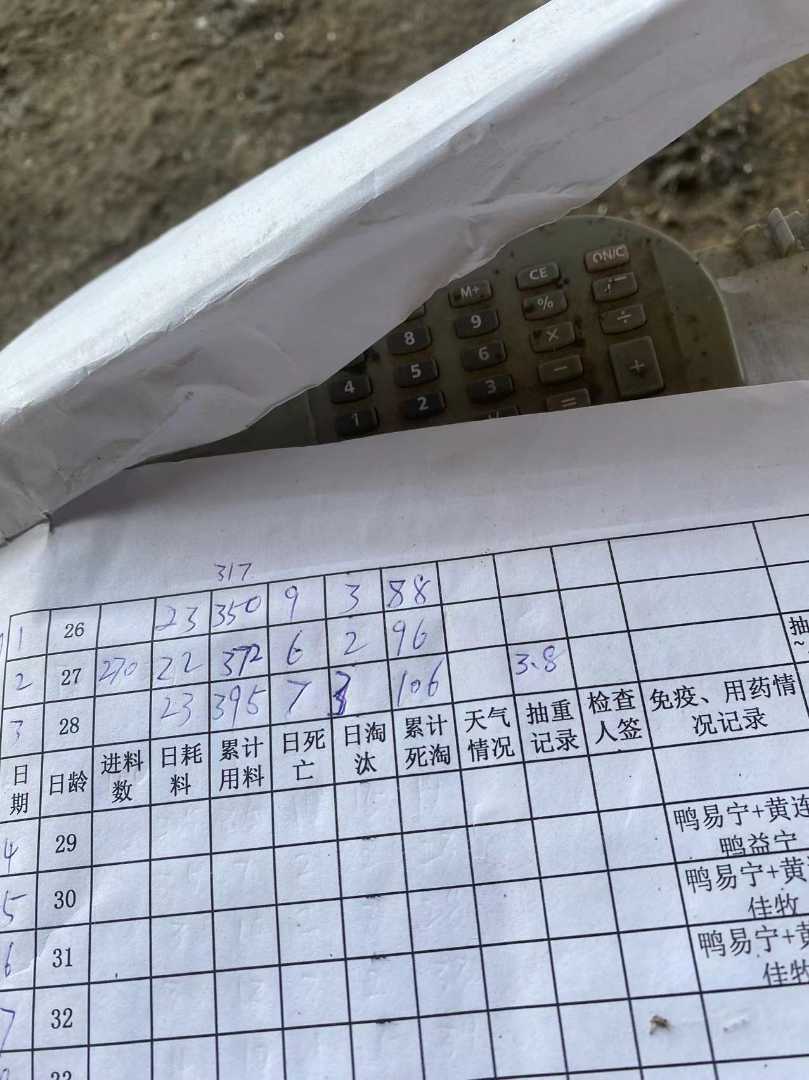 ON/C
CE
M+
% ÷
8 9 ×
4 5 6 − +
1 2 3 =
317
1 26 23 350 9 3 88
2 27 270 22 372 6 2 96 3.8 抽
3 28 23 395 7 3 106
日期 日龄 进料数 日耗料 累计用料 日死亡 日淘汰 累计死淘 天气情况 抽重记录 检查人签 免疫、用药情况记录
4 29 鸭易宁+黄连
鸭益宁
5 30 鸭易宁+黄
佳牧
6 31 鸭易宁+黄
佳牧
7 32